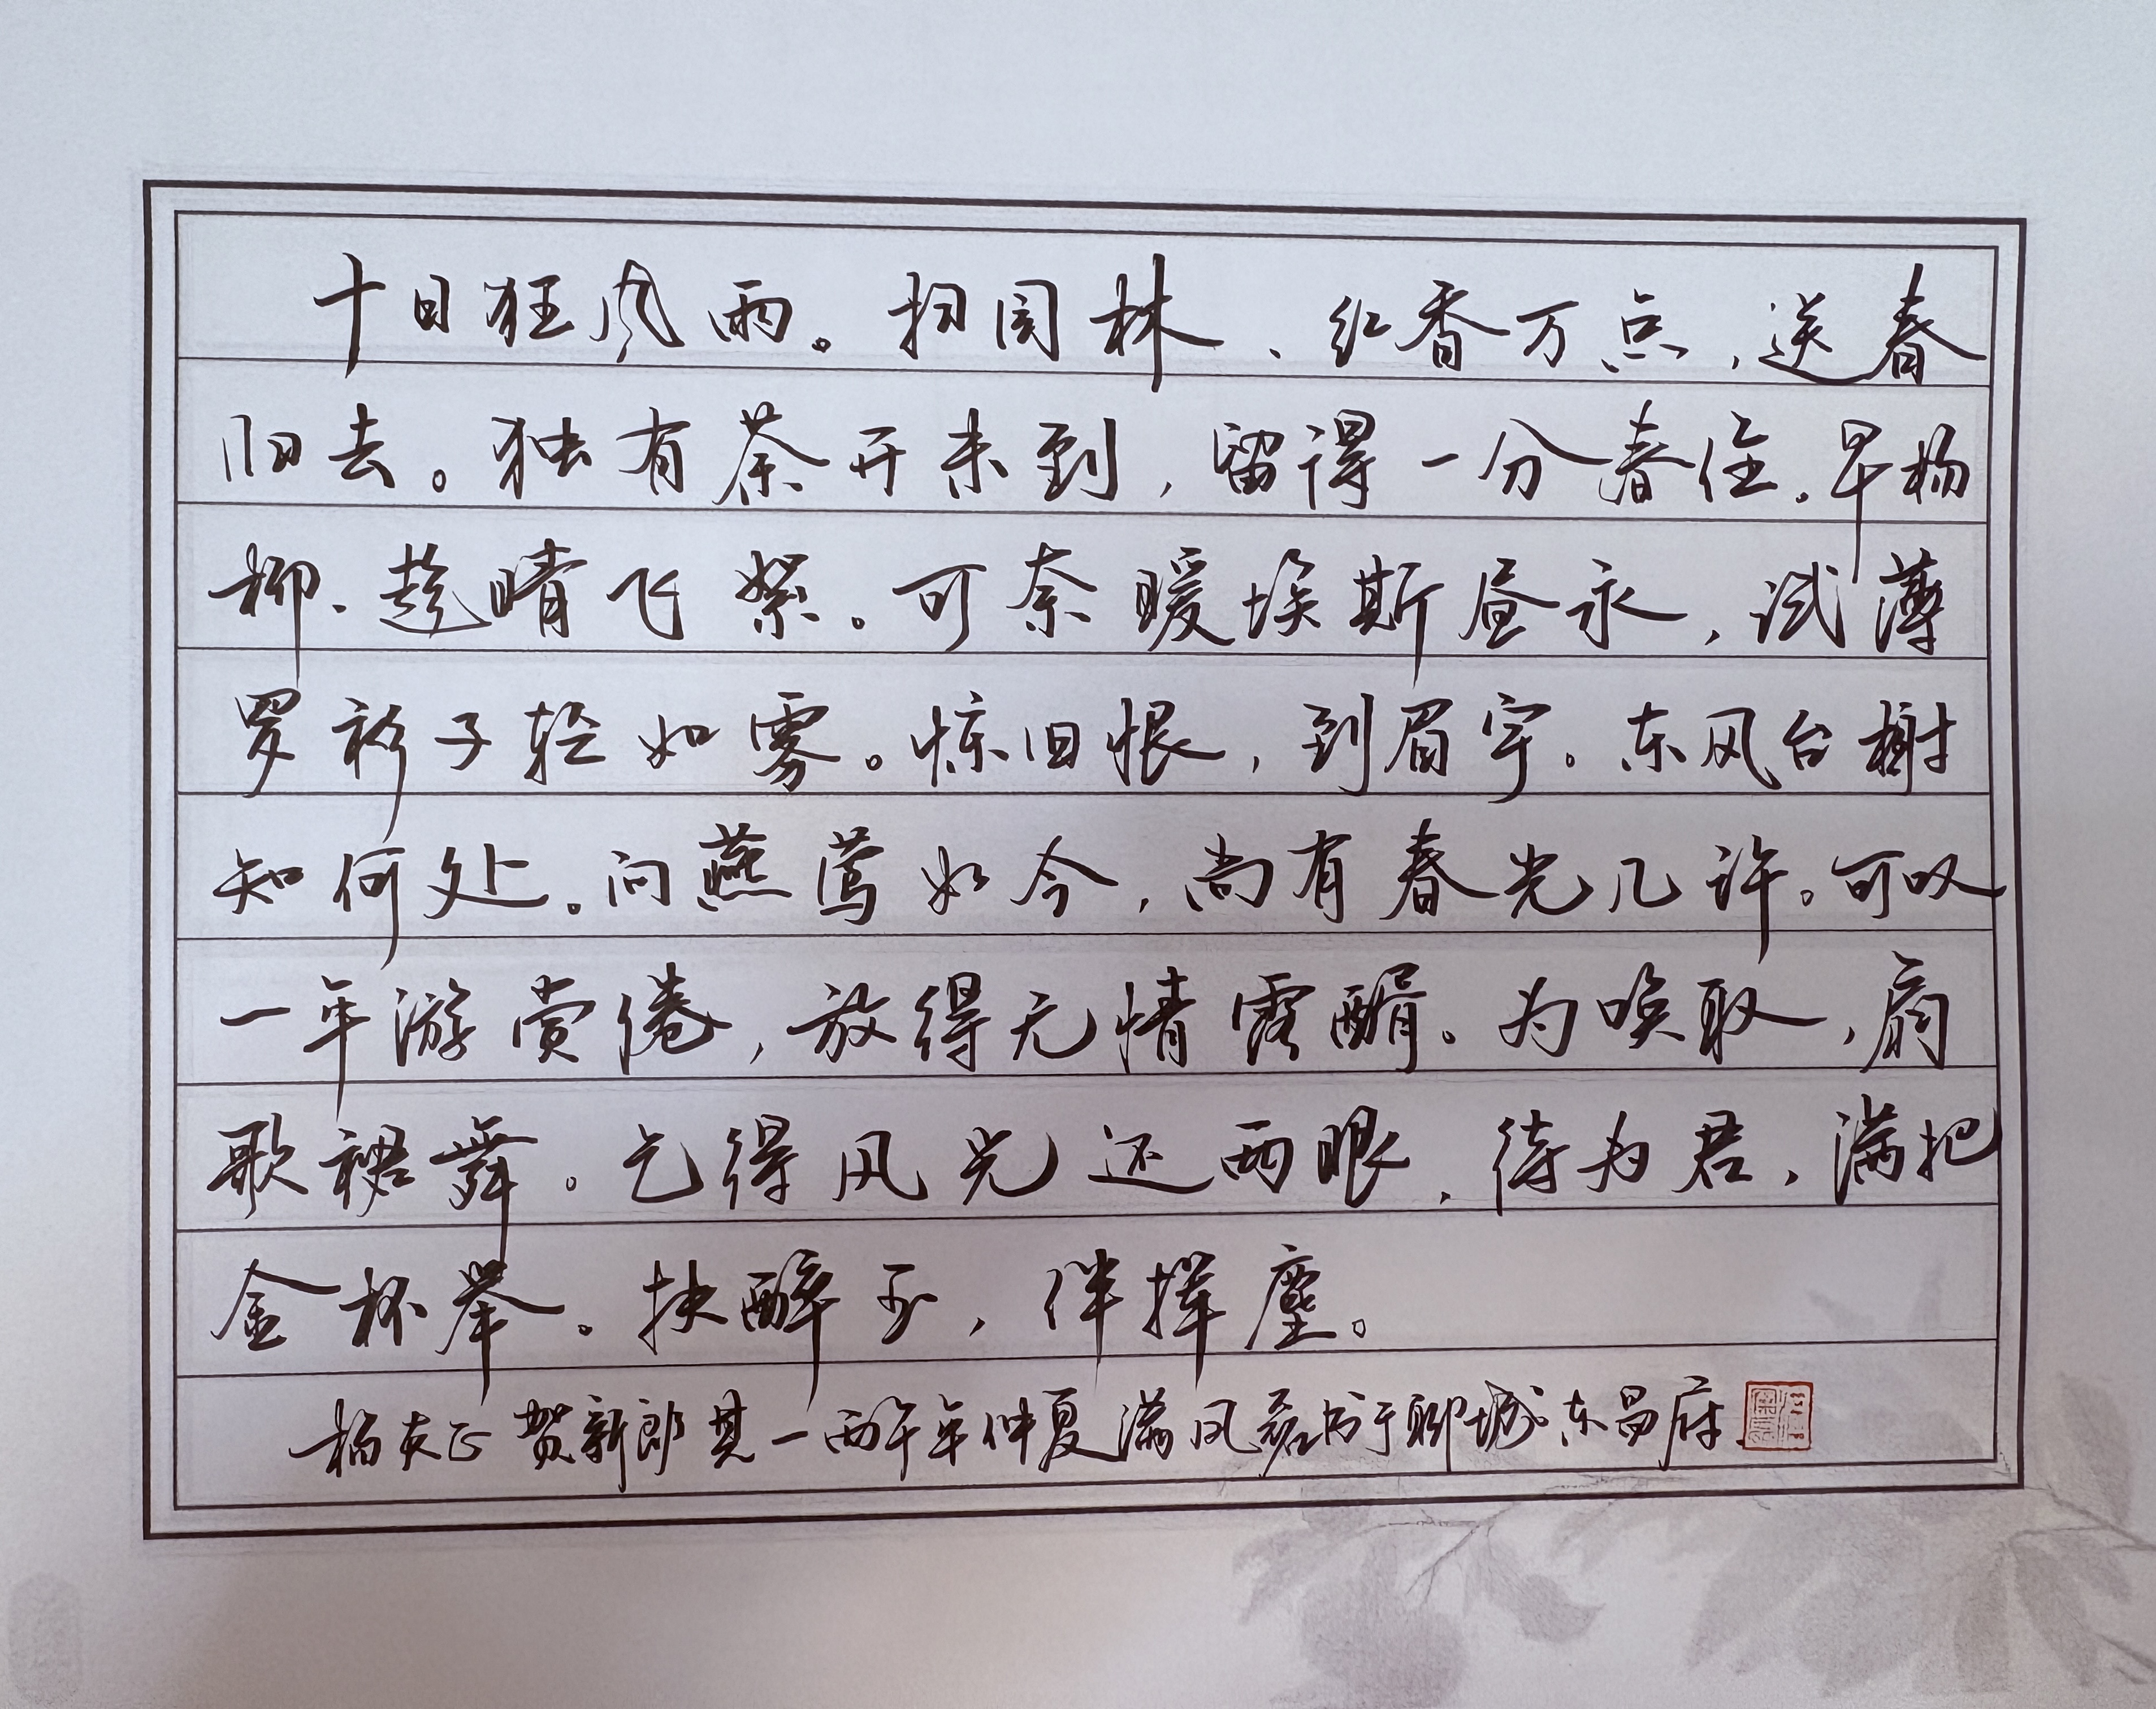 十日狂风雨。扫园林、红香万点,送春
归去。独有荼开未到,留得一分春住。早杨
柳、趁晴飞絮。可奈暖埃斯昼永,试薄
罗衫子轻如雾。惊旧恨,到眉宇。东风台榭
知何处。问燕莺如今,尚有春光几许。可叹
一年游赏倦,放得无情露醑。为唤取,扇
歌裙舞。乞得风光还两眼,待为君,满把
金杯举。扶醉玉,伴挥麈。
杨炎正 贺新郎 其一 丙午年仲夏满风 书于聊城东昌府